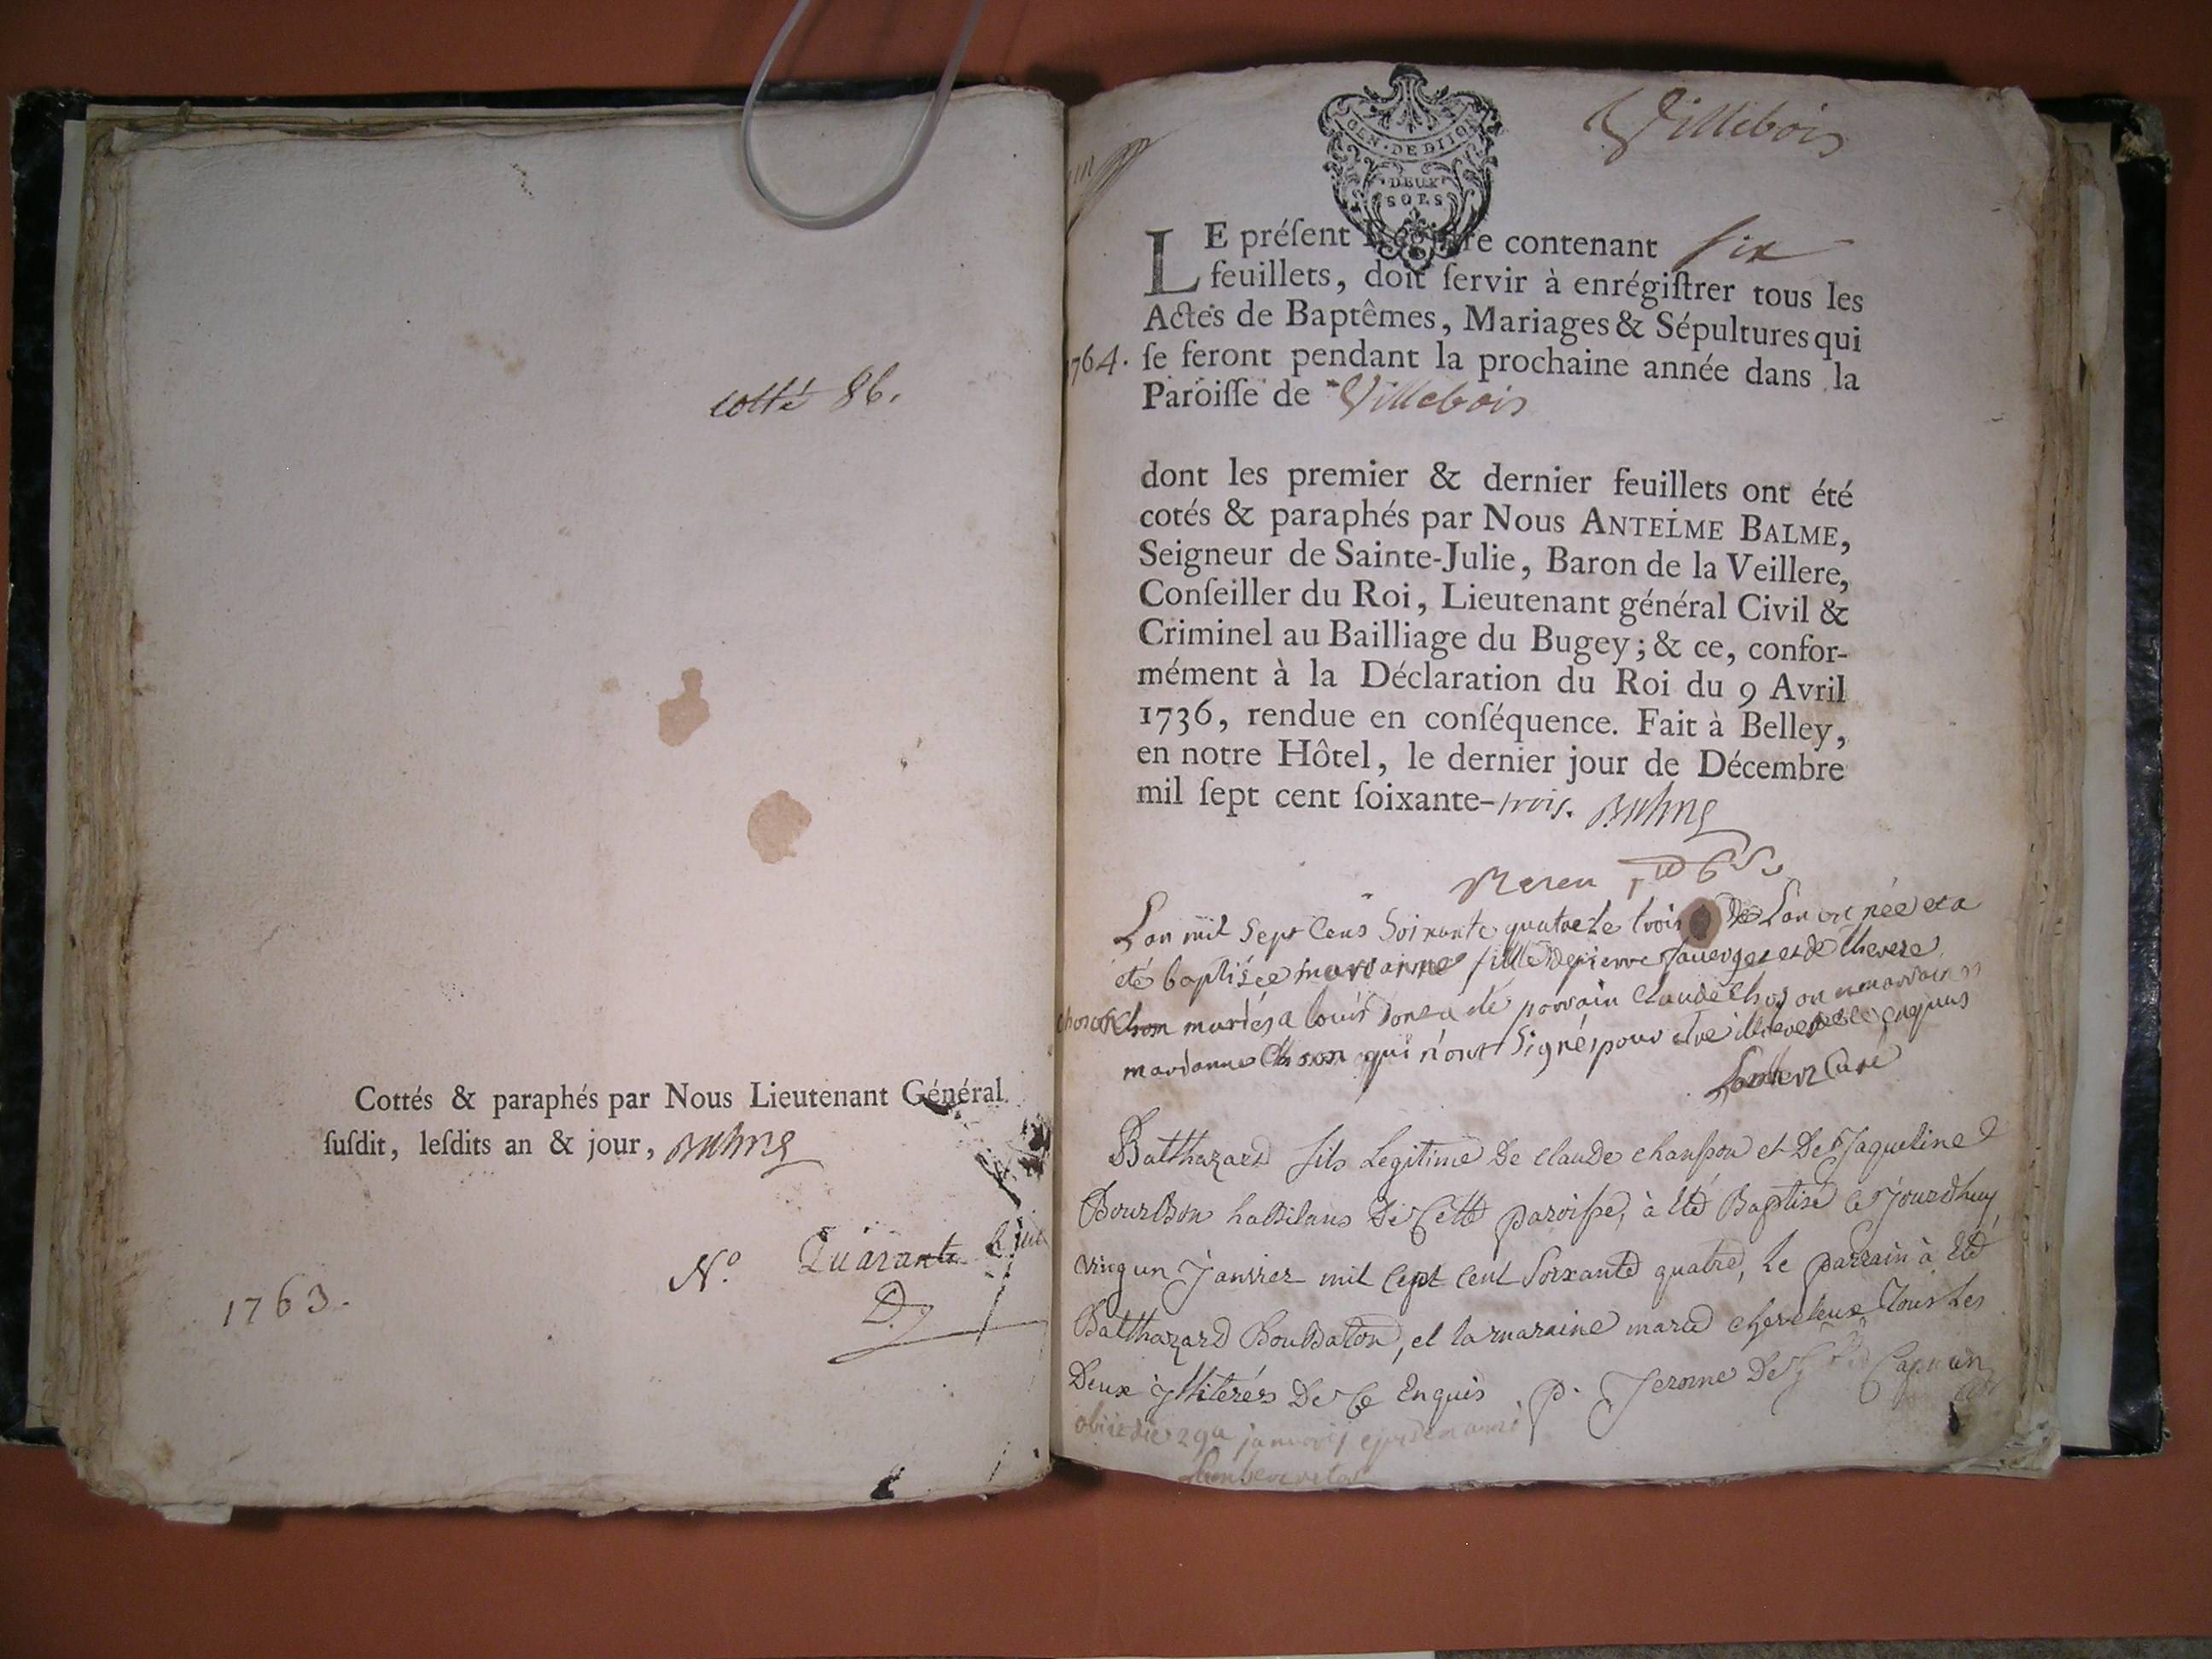 cotté 86.
Cottés & paraphés par Nous Lieutenant Général
ſuſdit, leſdits an & jour,
N.o Quarante
1763.
GEN. DE DIJON
DEUX
SOLS
Villebois
LE préſent Regiſtre contenant ſix
feuillets, doit ſervir à enrégiſtrer tous les
Actes de Baptêmes, Mariages & Sépultures qui
1764. ſe feront pendant la prochaine année dans la
Paroiſſe de Villebois
dont les premier & dernier feuillets ont été
cotés & paraphés par Nous ANTELME BALME,
Seigneur de Sainte-Julie, Baron de la Veillere,
Conſeiller du Roi, Lieutenant général Civil &
Criminel au Bailliage du Bugey ; & ce, confor-
mément à la Déclaration du Roi du 9 Avril
1736, rendue en conſéquence. Fait à Belley,
en notre Hôtel, le dernier jour de Décembre
mil ſept cent ſoixante-trois.
Lan mil Sept Cens Soixante quatre Le trois de Lan est née et a
eté baptisée marianne fille de pierre et de
mariés a louis parrain Claude marraine
marianne qui n'ont Signés pour etre enquis
Curé
Balthazard fils Legitime De Claude chanſson et De Jaqueline
Bourbon habitans De Cette paroisse, à Eté Baptisé ce Jourdhuy
ving un Janvier mil Cept Cent Soixante quatre, Le parrain à Eté
Balthazard, et la maraine marie tous Les
Deux illiterés De Ce Enquis P. Jerome De Capucin
obiit die 29a januarij ejusdem anni